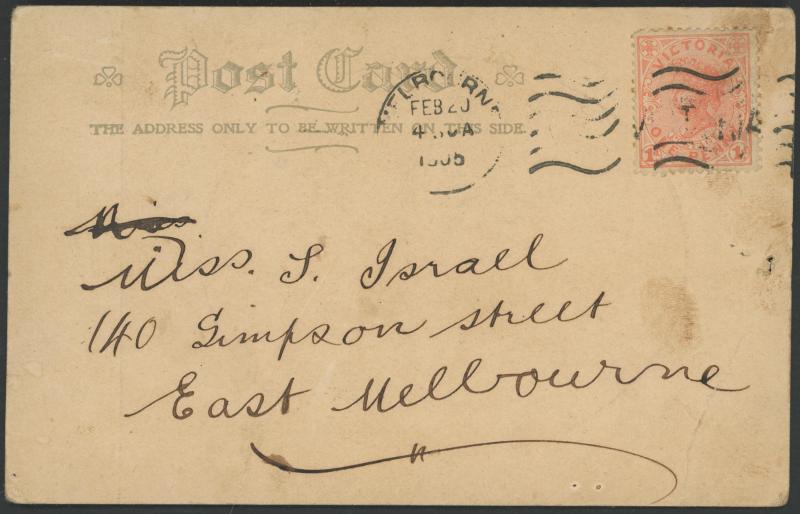 Post Card
THE ADDRESS ONLY TO BE WRITTEN ON THIS SIDE.
MELBOURNE
FEB 20
1905
VICTORIA
ONE PENNY
1 1
Miss
Miss. S. Israel
140 Simpson street
East Melbourne